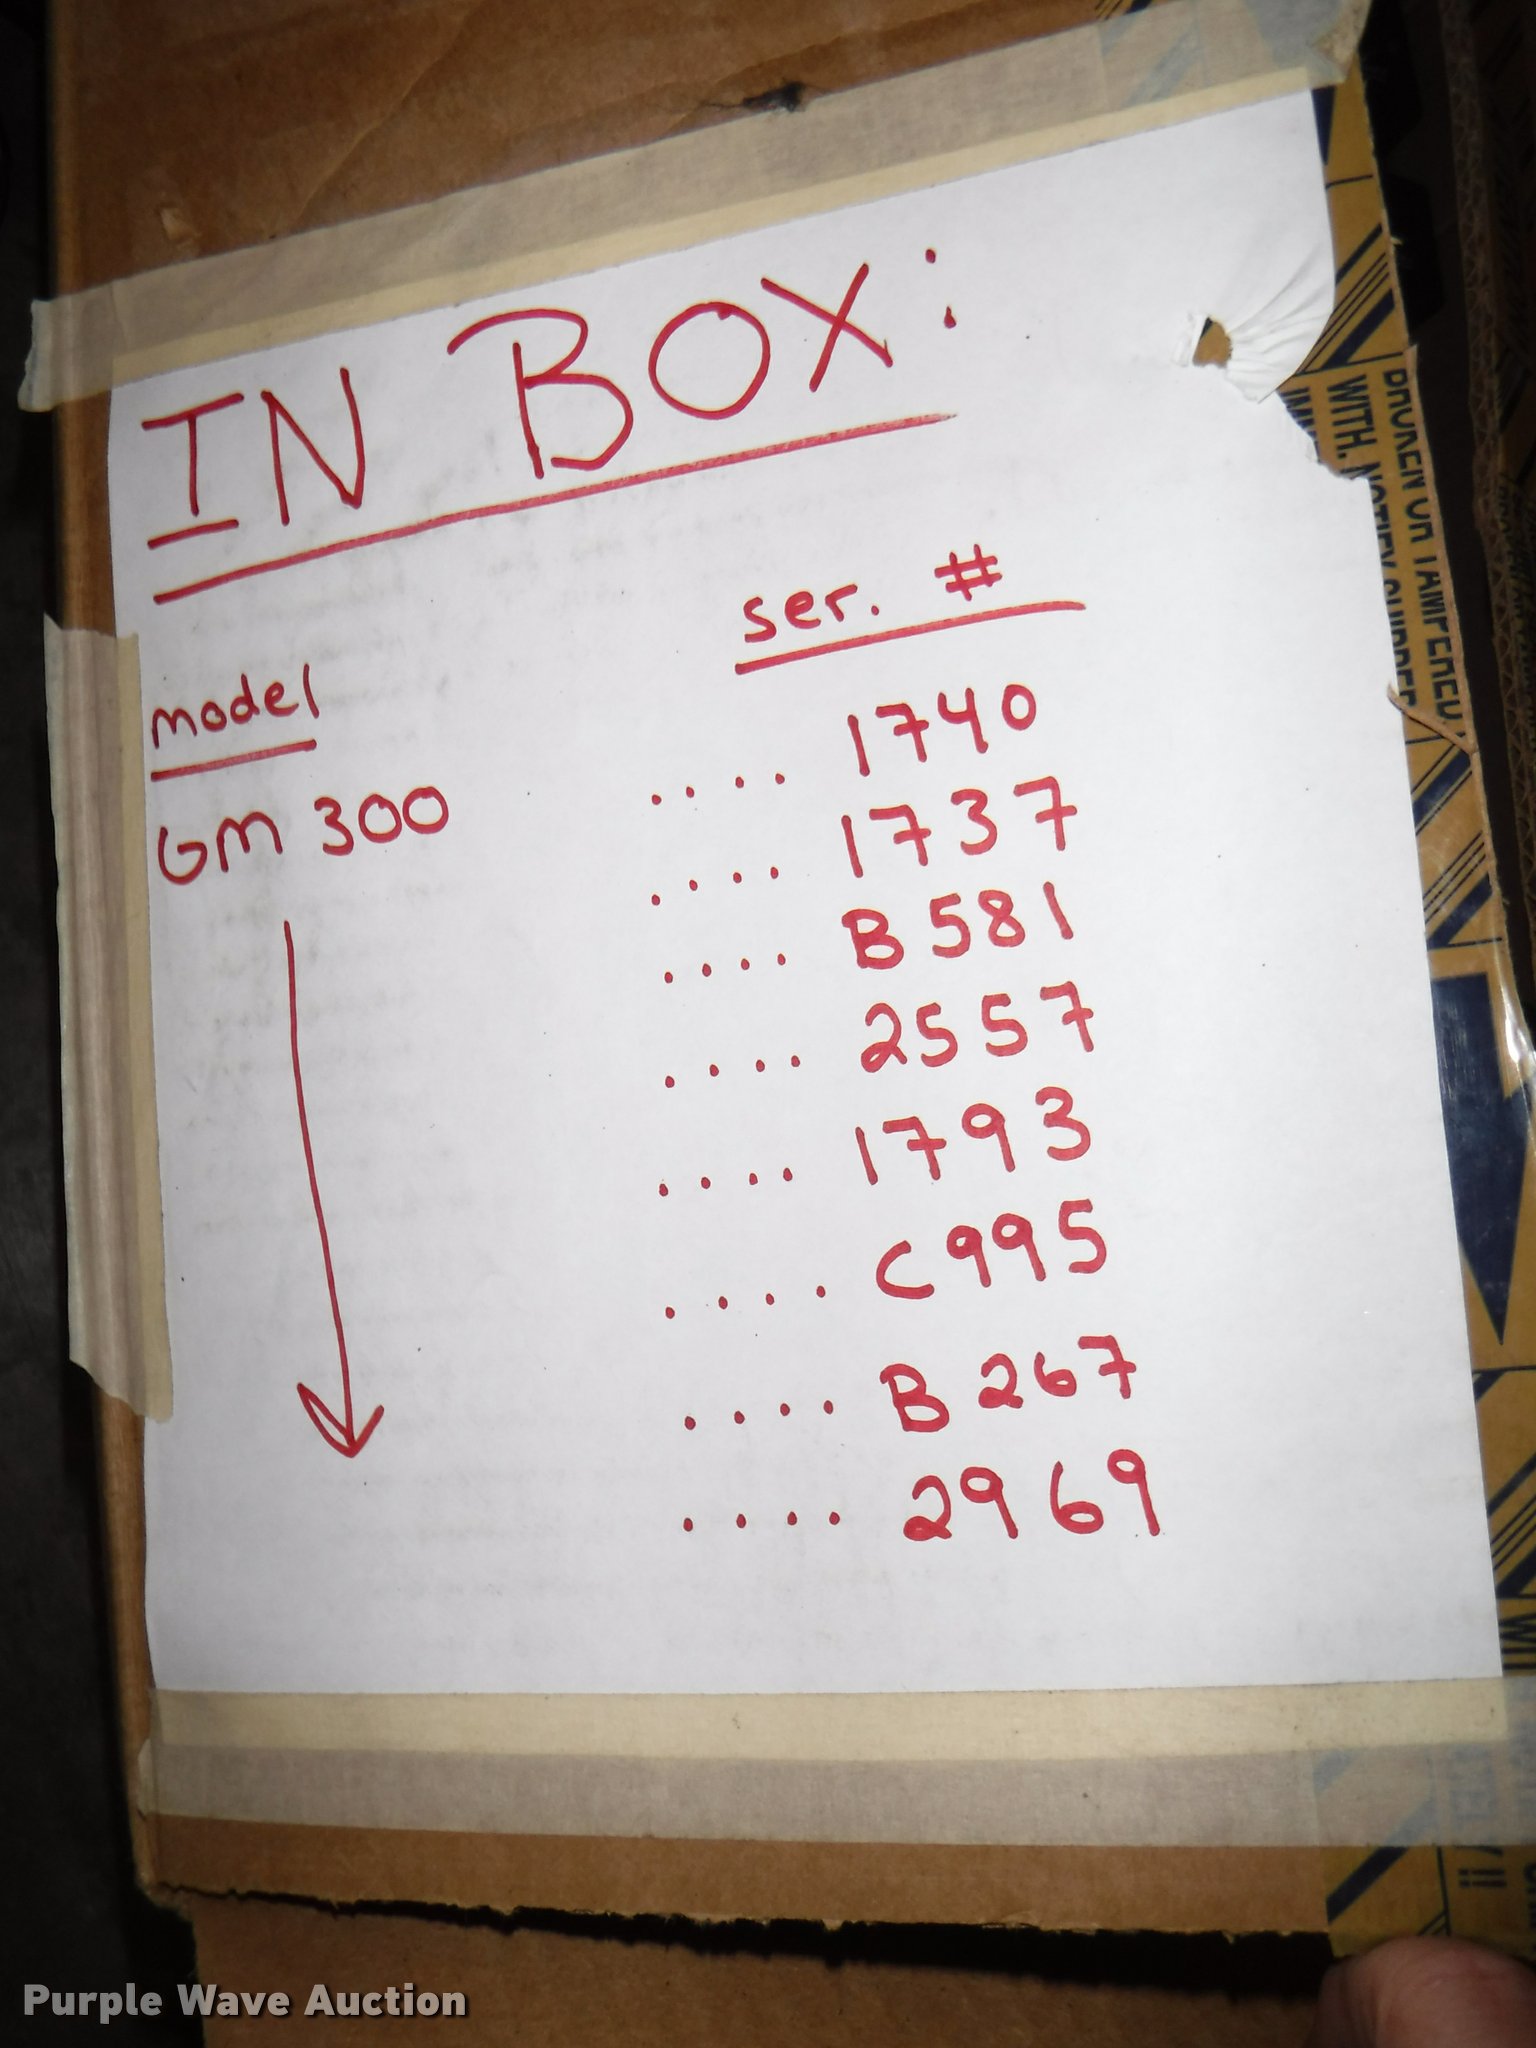 IN BOX:
model ser. #
GM 300 .... 1740
.... 1737
.... B581
.... 2557
.... 1793
.... C995
.... B267
.... 2969
BROKEN OR TAMPERED
WITH, NOTIFY SHIPPER
Purple Wave Auction